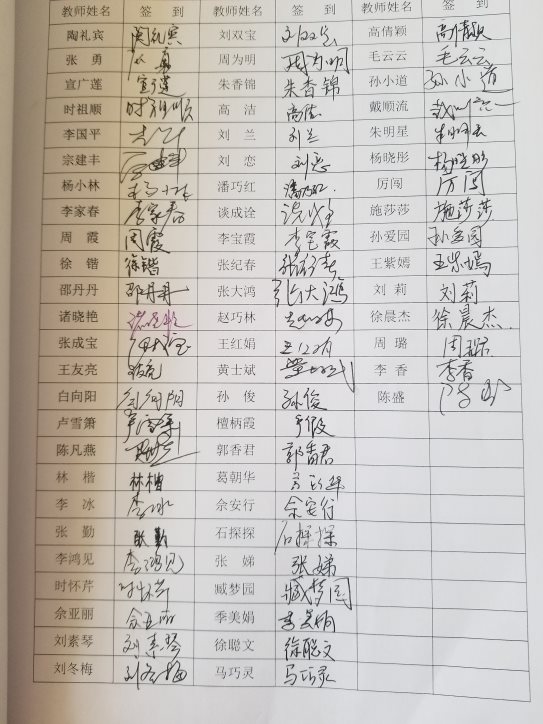 教师姓名 签 到 教师姓名 签 到 教师姓名 签 到
陶礼宾 陶礼宾 刘双宝 刘双宝 高倩颖 高倩颖
张 勇 张勇 周为明 周为明 毛云云 毛云云
宣广莲 宣广莲 朱香锦 朱香锦 孙小道 孙小道
时祖顺 时祖顺 高 洁 高洁 戴顺流
李国平 刘 兰 刘兰 朱明星 朱明星
宗建丰 刘 恋 刘恋 杨晓彤 杨晓彤
杨小林 杨小林 潘巧红 潘巧红 厉闯 厉闯
李家春 李家春 谈成诠 施莎莎 施莎莎
周 霞 周霞 李宝霞 李宝霞 孙爱园 孙爱园
徐 锴 徐锴 张纪春 张纪春 王紫嫣 王紫嫣
邵丹丹 邵丹丹 张大鸿 张大鸿 刘 莉 刘莉
诸晓艳 诸晓艳 赵巧林 徐晨杰 徐晨杰
张成宝 王红娟 周 璐 周璐
王友亮 黄士斌 李 香 李香
白向阳 白向阳 孙 俊 孙俊 陈盛
卢雪箫 檀柄霞
陈凡燕 郭香君 郭香君
林 楷 林楷 葛朝华
李 冰 李冰 佘安行 佘安行
张 勤 张勤 石探探 石探探
李鸿见 李鸿见 张 娣 张娣
时怀芹 时怀芹 臧梦园 臧梦园
佘亚丽 佘亚丽 季美娟 季美娟
刘素琴 刘素琴 徐聪文 徐聪文
刘冬梅 刘冬梅 马巧灵 马巧灵